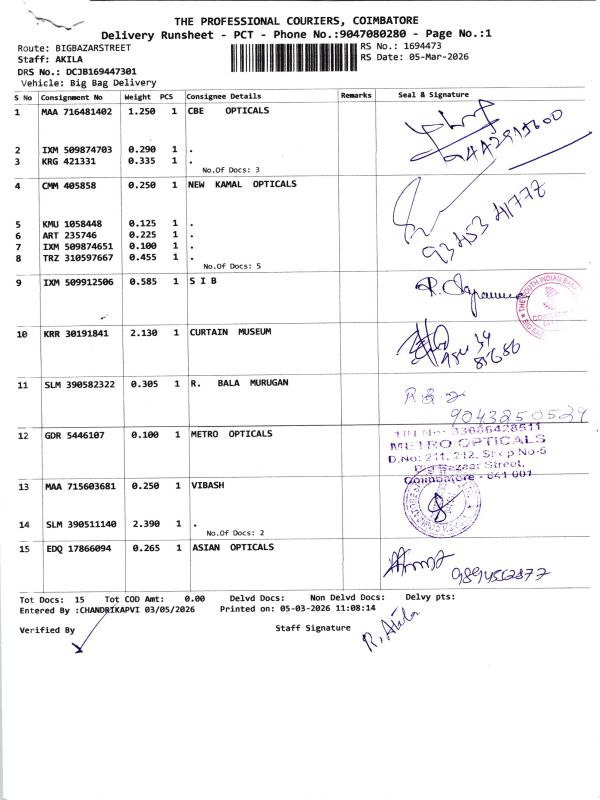 THE PROFESSIONAL COURIERS, COIMBATORE
Delivery Runsheet - PCT - Phone No.:9047080280 - Page No.:1
Route: BIGBAZARSTREET RS No.: 1694473
Staff: AKILA RS Date: 05-Mar-2026
DRS No.: DCJB169447301
Vehicle: Big Bag Delivery
S No Consignment No Weight PCS Consignee Details Remarks Seal & Signature
1 MAA 716481402 1.250 1 CBE OPTICALS
2 IXM 509874703 0.290 1 .
3 KRG 421331 0.335 1 .
No.Of Docs: 3
4 CMM 405858 0.250 1 NEW KAMAL OPTICALS
93453 41772
5 KMU 1058448 0.125 1 .
6 ART 235746 0.225 1 .
7 IXM 509874651 0.100 1 .
8 TRZ 310597667 0.455 1 .
No.Of Docs: 5
9 IXM 509912506 0.585 1 S I B
THE SOUTH INDIAN BANK
10 KRR 30191841 2.130 1 CURTAIN MUSEUM
11 SLM 390582322 0.305 1 R. BALA MURUGAN
9043250529
12 GDR 5446107 0.100 1 METRO OPTICALS
TIN No: 33686428511
METRO OPTICALS
D.No: 211, 212, Shop No-5
Big Bazaar Street,
Coimbatore - 641 001
13 MAA 715603681 0.250 1 VIBASH
14 SLM 390511140 2.390 1 .
No.Of Docs: 2
15 EDQ 17866094 0.265 1 ASIAN OPTICALS
9894562877
Tot Docs: 15 Tot COD Amt: 0.00 Delvd Docs: Non Delvd Docs: Delvy pts:
Entered By :CHANDRIKAPVI 03/05/2026 Printed on: 05-03-2026 11:08:14
Verified By Staff Signature
R. Akila